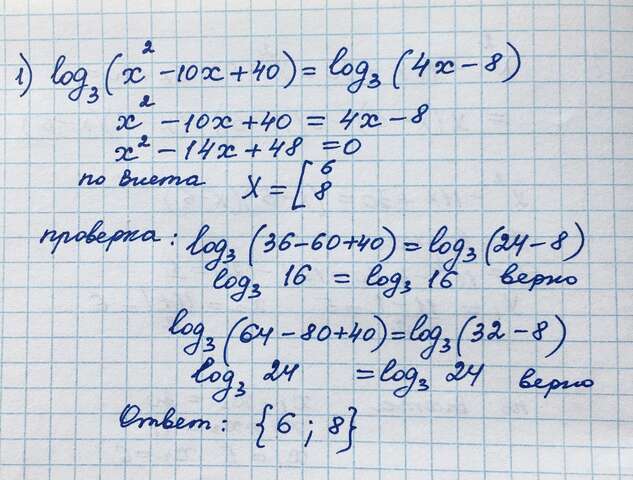 1) log₃(x² – 10x + 40) = log₃(4x – 8)
x² – 10x + 40 = 4x – 8
x² – 14x + 48 = 0
по Виета x = [6 8
проверка: log₃(36 – 60 + 40) = log₃(24 – 8)
log₃ 16 = log₃ 16 верно
log₃(64 – 80 + 40) = log₃(32 – 8)
log₃ 24 = log₃ 24 верно
Ответ: {6 ; 8}